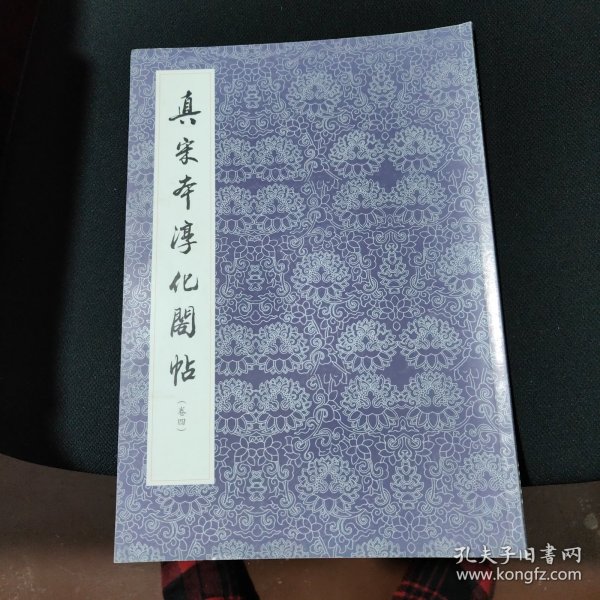 真宋本淳化閣帖
(卷四)
孔夫子旧書网
www.kongfz.com